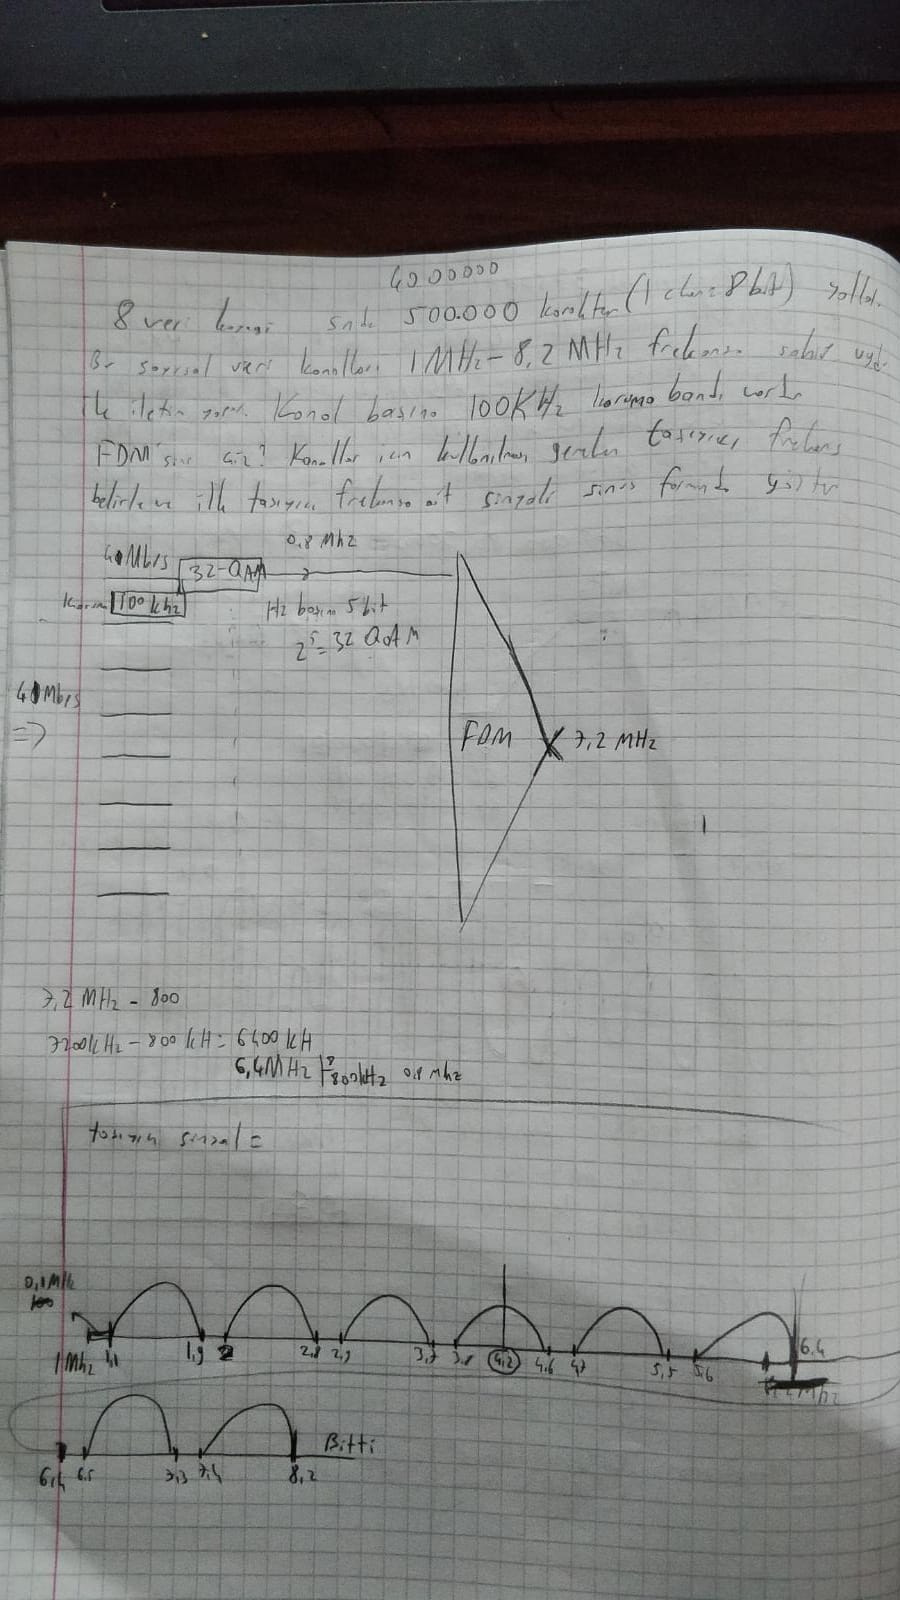 4000000
8 veri kanalı snde 500.000 karakter (1 char = 8 bit) yollar.
Bu sayısal veri kanalları 1MHz - 8,2 MHz frekansa sahip
ile iletim 100KHz koruma bandı vardır
FDM çiz? Kanallar için kullanılması gereken taşıyıcı frekans
belirle ve ilk taşıyıcı frekansa ait sinyali sinüs formunda göster
0,8 Mhz
4Mb/s 32-QAM
100 khz Hz başına 5 bit
2⁵=32 QAM
4Mb/s
=>
FDM 7,2 MHz
7,2 MHz - 800
7200kHz - 800 kH = 6400 kH
6,4MHz 8 800kHz 0,8 Mhz
taşıyıcı sinyal =
0,1MHz
1 Mhz 1,1 1,9 2 2,8 2,9 3,7 3,8 4,2 4,6 4,7 5,5 5,6 6,4
Bitti
6,4 6,5 7,3 7,4 8,2